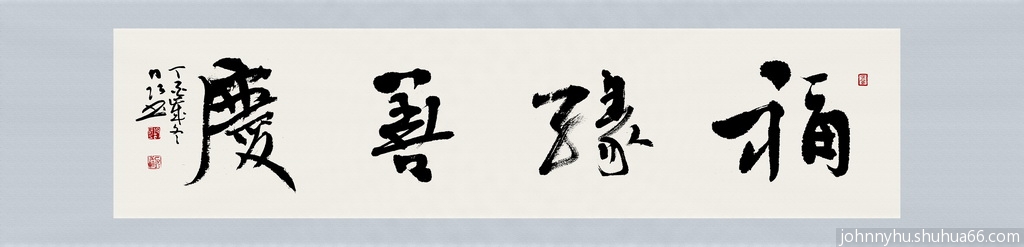 福缘善慶
丁亥歲冬
johnnyhu.shuhua66.com